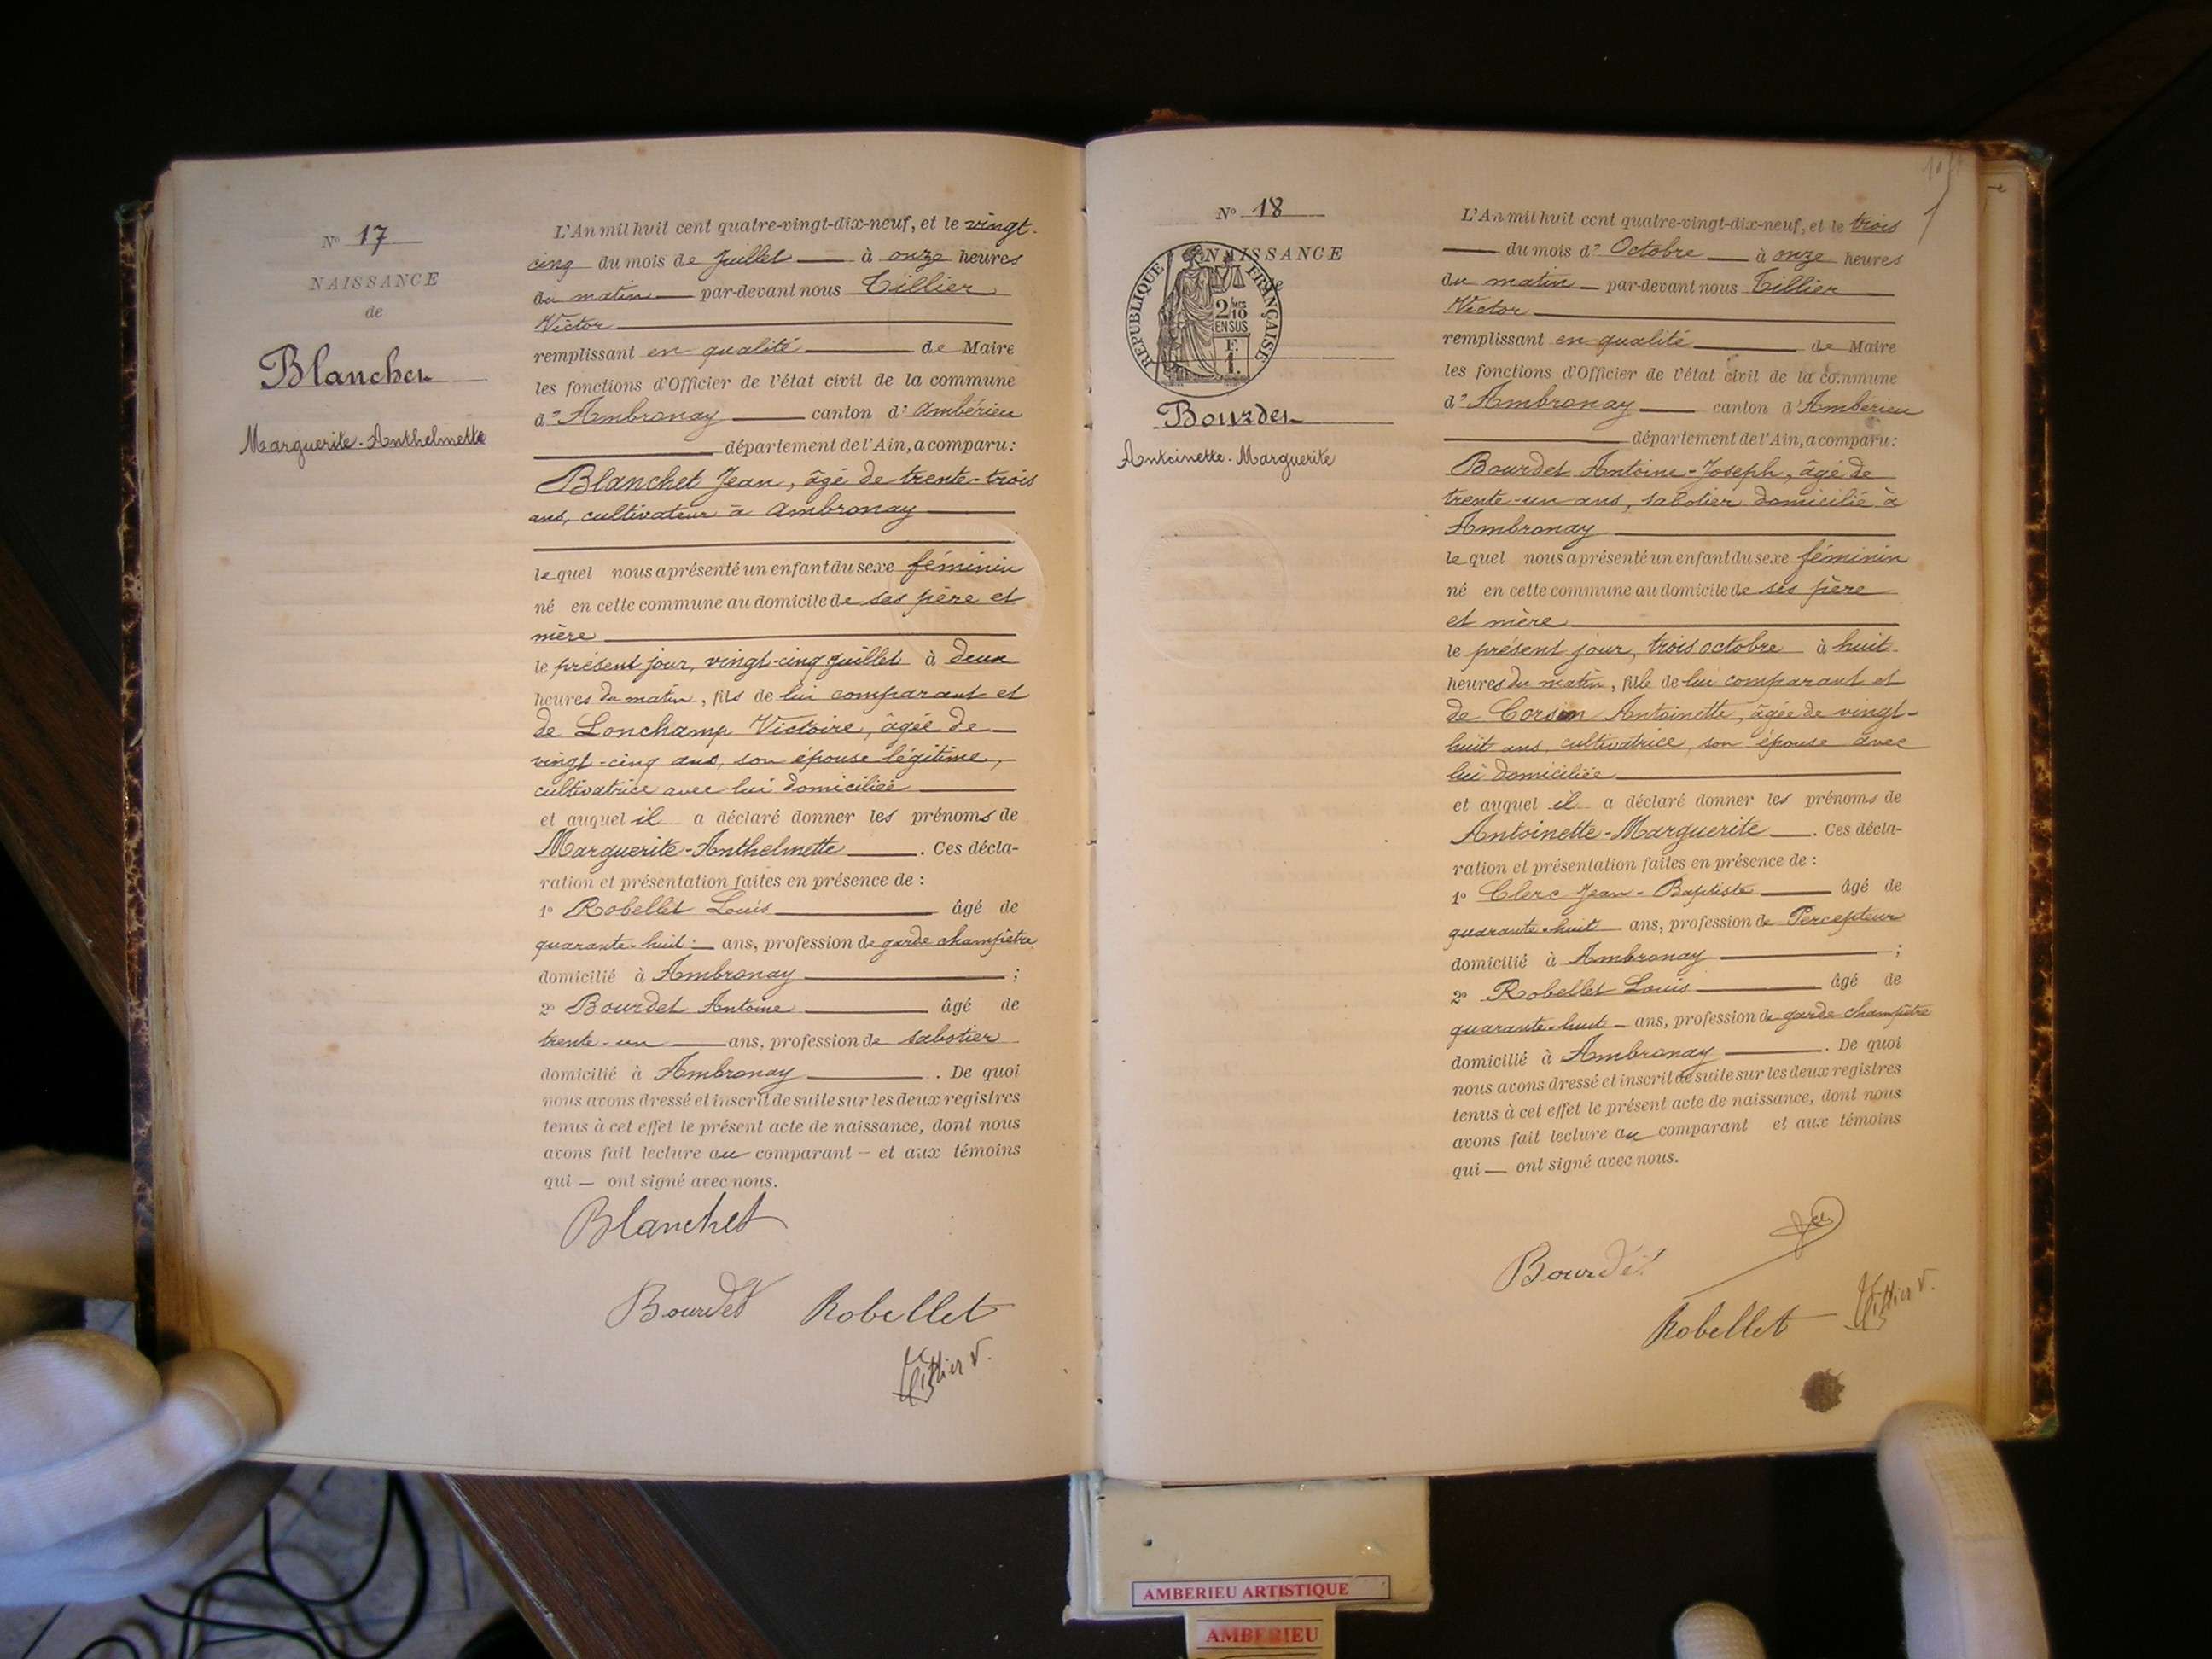 N° 17
NAISSANCE
de
Blanchet
Marguerite-Anthelmette
L'An mil huit cent quatre-vingt-dix-neuf, et le vingt-
cinq du mois de Juillet à onze heures
du matin par-devant nous Tillier
Victor
remplissant en qualité de Maire
les fonctions d'Officier de l'état civil de la commune
d'Ambronay canton d'Ambérieu
département de l'Ain, a comparu:
Blanchet Jean, âgé de trente-trois
ans, cultivateur à Ambronay
lequel nous a présenté un enfant du sexe féminin
né en cette commune au domicile de ses père et
mère
le présent jour, vingt-cinq Juillet à deux
heures du matin, fils de lui comparant et
de Lonchamp Victoire, âgée de
vingt-cinq ans, son épouse légitime,
cultivatrice avec lui domiciliée
et auquel il a déclaré donner les prénoms de
Marguerite-Anthelmette. Ces décla-
ration et présentation faites en présence de :
1° Robellet Louis âgé de
quarante-huit ans, profession de garde champêtre
domicilié à Ambronay ;
2° Bourdet Antoine âgé de
trente-un ans, profession de sabotier
domicilié à Ambronay. De quoi
nous avons dressé et inscrit de suite sur les deux registres
tenus à cet effet le présent acte de naissance, dont nous
avons fait lecture au comparant - et aux témoins
qui — ont signé avec nous.
Blanchet
Bourdet Robellet
Tillier V.
N° 18
NAISSANCE
de
RÉPUBLIQUE FRANÇAISE
2/10
EN SUS
F.
1.
Bourdet
Antoinette-Marguerite
L'An mil huit cent quatre-vingt-dix-neuf, et le trois
du mois d'Octobre à onze heures
du matin par-devant nous Tillier
Victor
remplissant en qualité de Maire
les fonctions d'Officier de l'état civil de la commune
d'Ambronay canton d'Ambérieu
département de l'Ain, a comparu:
Bourdet Antoine-Joseph, âgé de
trente-un ans, sabotier domicilié à
Ambronay
lequel nous a présenté un enfant du sexe féminin
né en cette commune au domicile de ses père
et mère
le présent jour, trois octobre à huit
heures du matin, fille de lui comparant et
de Antoinette, âgée de vingt-
huit ans, cultivatrice, son épouse avec
lui domiciliée
et auquel il a déclaré donner les prénoms de
Antoinette-Marguerite. Ces décla-
ration et présentation faites en présence de :
1° Clerc Jean-Baptiste âgé de
quarante-huit ans, profession de Percepteur
domicilié à Ambronay ;
2° Robellet Louis âgé de
quarante-huit ans, profession de garde champêtre
domicilié à Ambronay. De quoi
nous avons dressé et inscrit de suite sur les deux registres
tenus à cet effet le présent acte de naissance, dont nous
avons fait lecture au comparant et aux témoins
qui — ont signé avec nous.
Bourdet
Robellet Tillier V.
AMBERIEU ARTISTIQUE
AMBERIEU